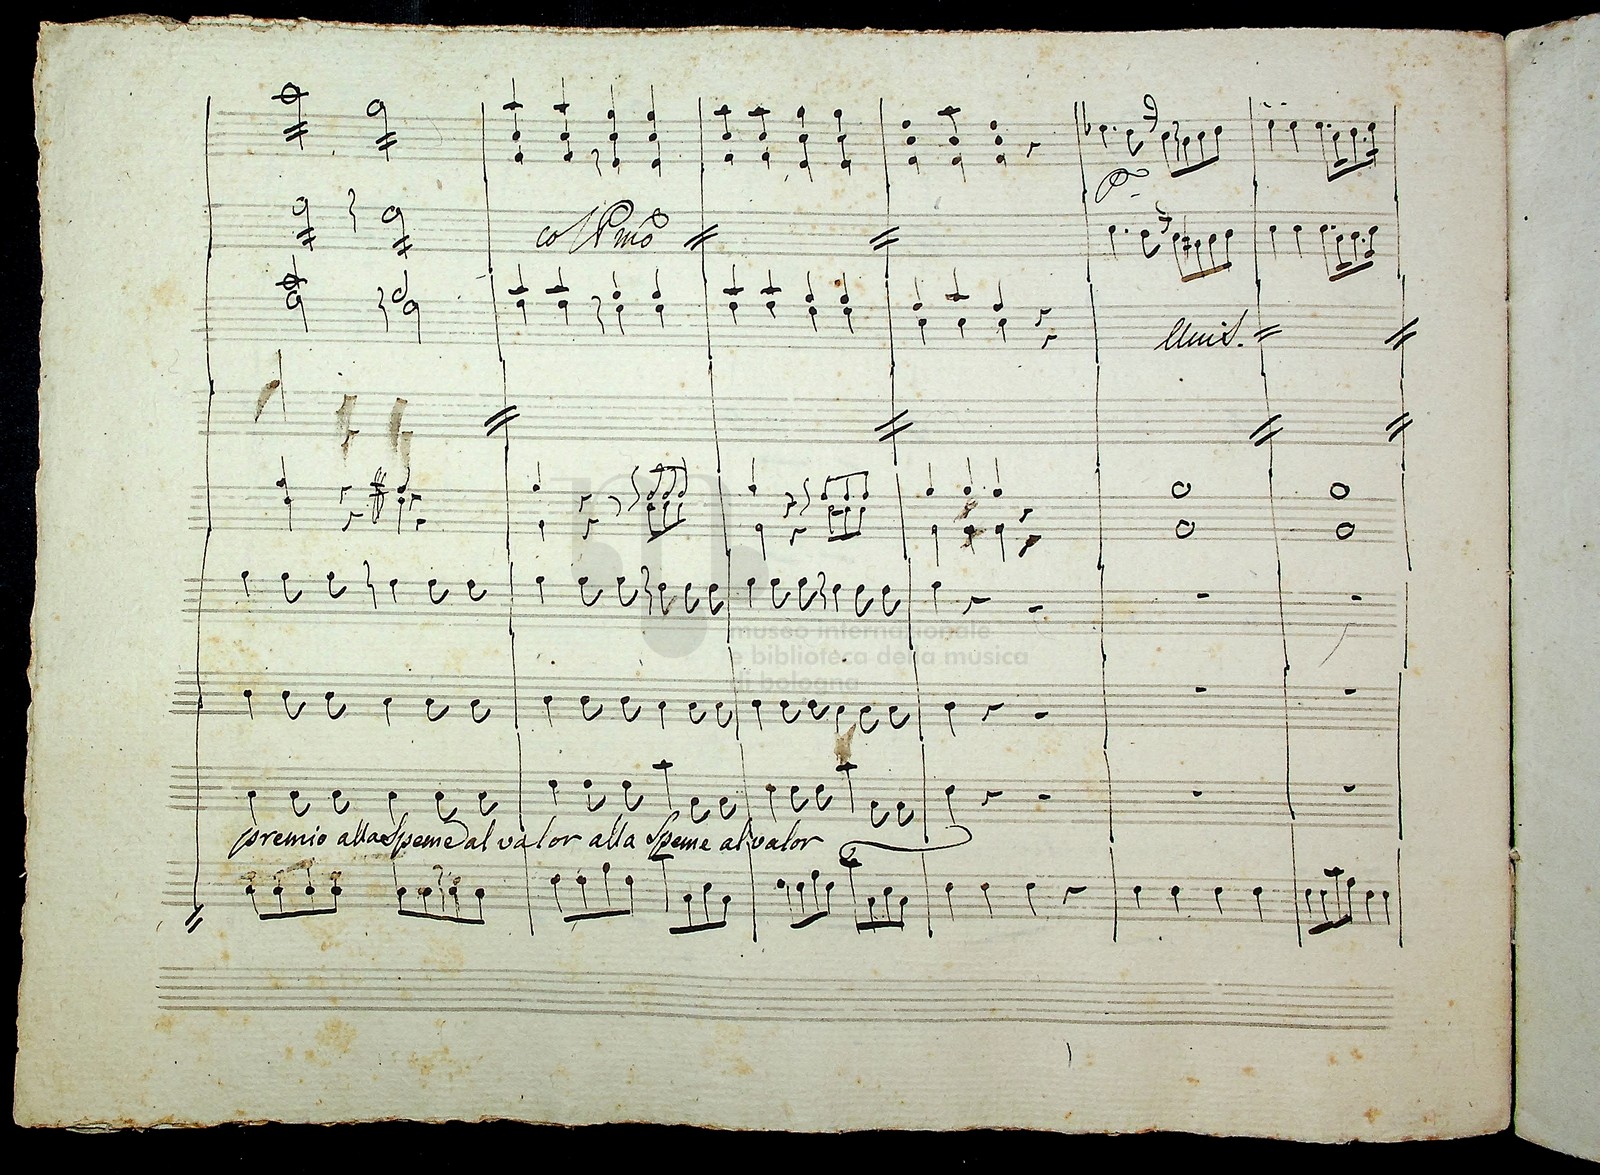 col Pmo
Unis.
museo internazionale
e biblioteca della musica
di bologna
premio alla Speme al valor alla Speme al valor